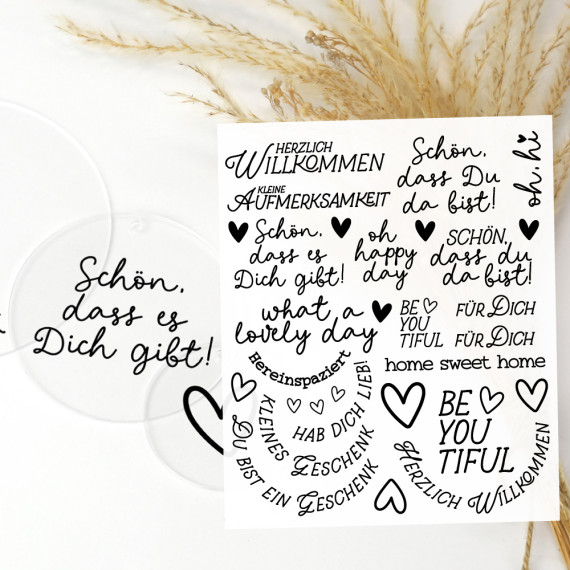 Schön,
dass es
Dich gibt!
HERZLICH
WILLKOMMEN
KLEINE
AUFMERKSAMKEIT
Schön,
dass Du
da bist!
oh, hi
Schön,
dass es
Dich gibt!
oh
happy
day
SCHÖN,
dass du
da bist!
what a
lovely day
BE
YOU
TIFUL
FÜR DICH
FÜR DICH
Hereinspaziert
home sweet home
HAB DICH LIEB!
KLEINES GESCHENK
DU BIST EIN GESCHENK
BE
YOU
TIFUL
HERZLICH WILLKOMMEN